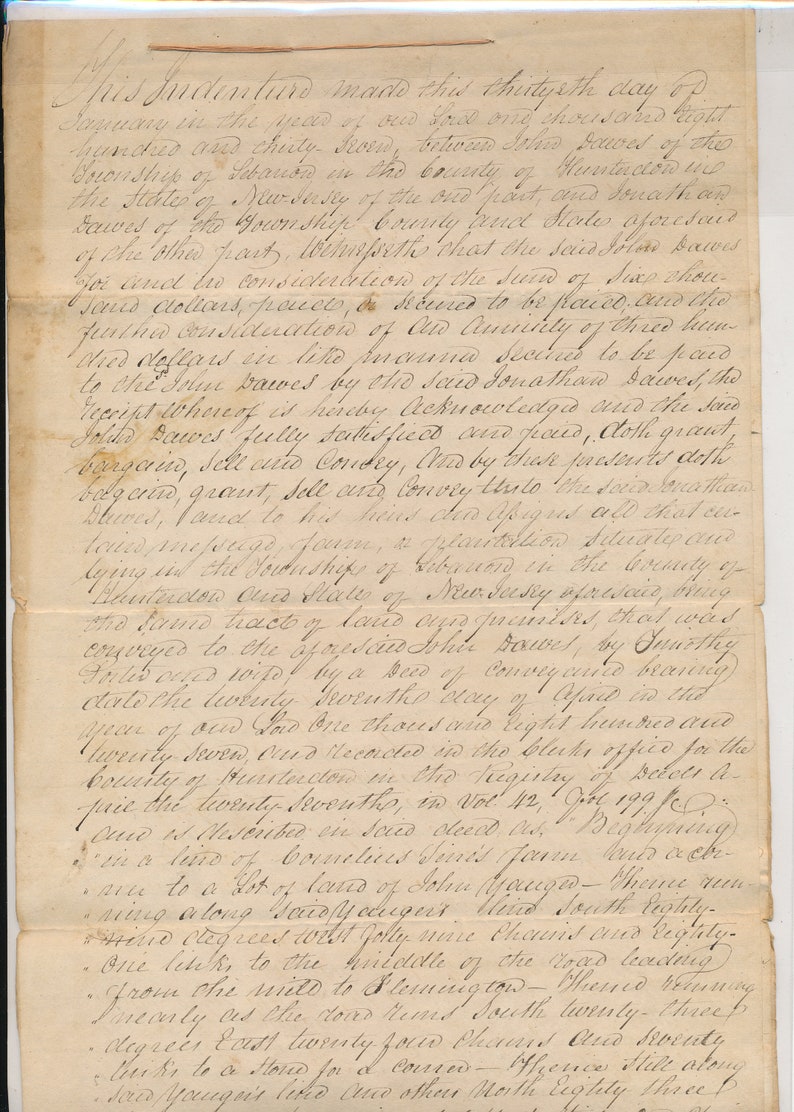 This Indenture made this thirtyeth day of
January in the year of our Lord one thousand Eight
hundred and thirty Seven, between John Dawes of the
Township of Lebanon in the County of Hunterdon in
the State of New Jersey of the one part, and Jonathan
Dawes of the Township County and State aforesaid
of the other part, Witnesseth that the said John Dawes
for and in consideration of the sum of Six thou-
sand dollars, paid, or secured to be paid, and the
further consideration of an annuity of three hun-
dred dollars in like manner secured to be paid
to the sd John Dawes by the said Jonathan Dawes, the
receipt Whereof is hereby Acknowledged and the said
John Dawes fully satisfied and paid, doth grant,
bargain, Sell and Convey, And by these presents doth
bagain, grant, Sell and Convey Unto the said Jonathan
Dawes, and to his heirs and Assigns all that cer-
tain messuage, farm, or plantation Situate and
lying in the Township of Lebanon in the County of
Hunterdon and State of New Jersey aforesaid, being
the same tract of land and premises, that was
conveyed to the aforesaid John Dawes, by Timothy
and wife, by a Deed of Conveyance bearing
date the twenty seventh day of April in the
year of our Lord One thousand Eight hundred and
twenty seven, and recorded in the Clerks office for the
County of Hunterdon in the Registry of Deeds A-
pril the twenty seventh, in Vol 42, Fol 199 &c.
and is described in said deed as, "Beginning
" in a line of Cornelius farm and a cor-
" ner to a Lot of land of John Yauger - Thence run-
" ning along said Yauger's line South Eighty-
" nine degrees West forty nine Chains and Eighty-
" One links to the middle of the road leading
" from the mill to Flemington - Thence running
" nearly as the road runs South twenty-three
" degrees East twenty four Chains and Seventy
" links to a Stone for a corner - Thence Still along
" said Yauger's line and others North Eighty three